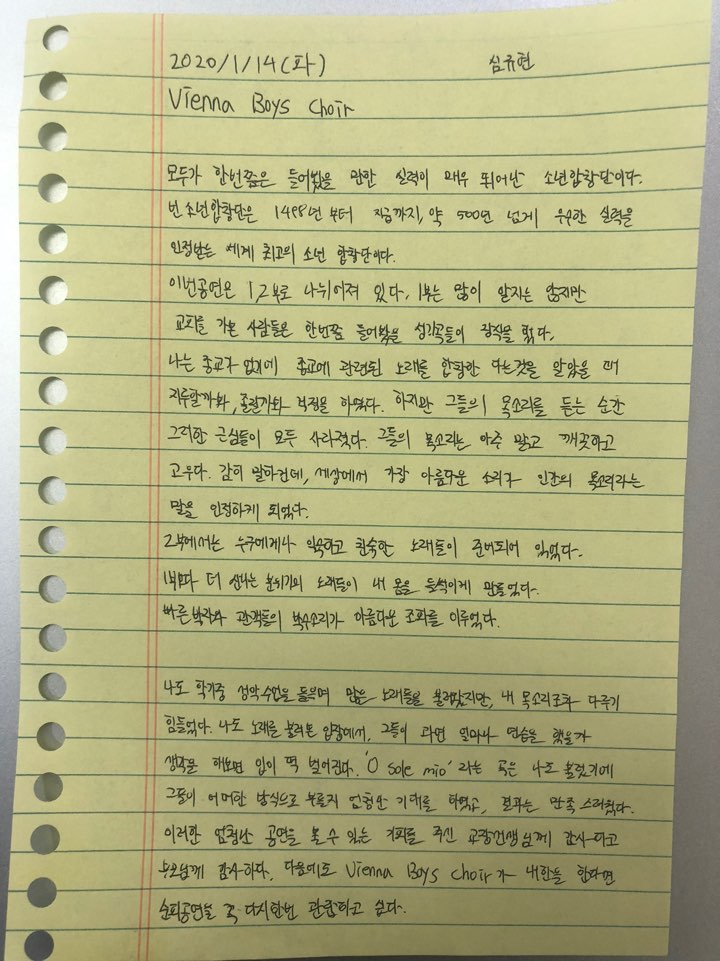 2020/1/14(화) 심규현
Vienna Boys Choir
모두가 한번쯤은 들어봤을 만한 실력이 매우 뛰어난 소년합창단이다.
빈 소년합창단은 1498년 부터 지금까지, 약 500년 넘게 우수한 실력을
인정받는 세계 최고의 소년 합창단이다.
이번공연은 1,2부로 나뉘어져 있다. 1부는 많이 알지는 않지만
교회를 가본 사람들은 한번쯤 들어봤을 성가곡들이 장식을 했다.
나는 종교가 없기에 종교에 관련된 노래를 합창한 다는것을 알았을 때
지루할까봐, 졸릴까봐 걱정을 하였다. 하지만 그들의 목소리를 듣는 순간
그러한 근심들이 모두 사라졌다. 그들의 목소리는 아주 맑고 깨끗하고
고우다. 감히 말하건데, 세상에서 가장 아름다운 소리가 인간의 목소리라는
말을 인정하게 되었다.
2부에서는 누구에게나 익숙하고 친숙한 노래들이 준비되어 있었다.
1부보다 더 신나는 분위기의 노래들이 내 몸을 들썩이게 만들었다.
빠른박자와 관객들의 박수소리가 아름다운 조화를 이루었다.
나도 학기중 성악수업을 들으며 많은 노래들을 불러봤지만, 내 목소리조차 다루기
힘들었다. 나도 노래를 불러본 입장에서, 그들이 과연 얼마나 연습을 했을까
생각을 해보면 입이 떡 벌어진다. 'O sole mio' 라는 곡은 나도 불렀기에
그들이 어떠한 방식으로 부를지 엄청난 기대를 하였고, 결과는 만족 스러웠다.
이러한 엄청난 공연을 볼 수 있는 기회를 주신 교장선생님께 감사하고
부모님께 감사하다. 다음에도 Vienna Boys Choir가 내한을 한다면
순회공연을 꼭 다시한번 관람하고 싶다.